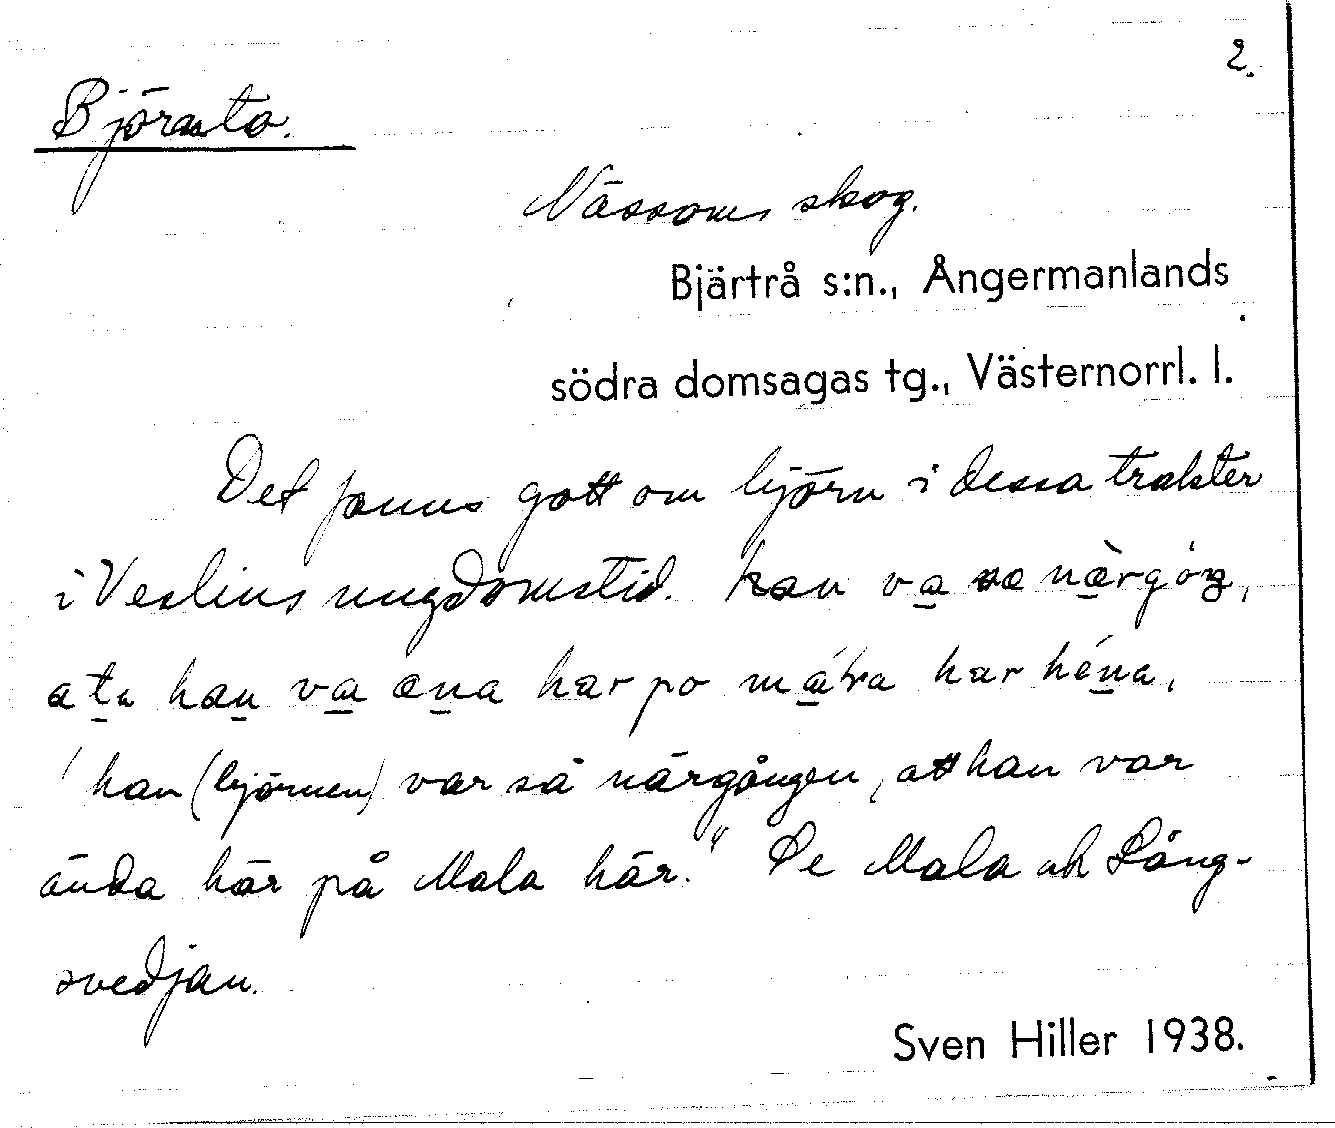 2.
Björnsta.
Nässoms skog.
Bjärtrå s:n., Ångermanlands
södra domsagas tg., Västernorrl. l.
Det fanns gott om björn i dessa trakter
i Veslins ungdomstid. han va sœ nœ̀rgóŋ,
ata han va œna har po mála har héna,
'han (björnen) var så närgången, att han var
ända här på Mala här." Se Mala och Lång-
svedjan.
Sven Hiller 1938.